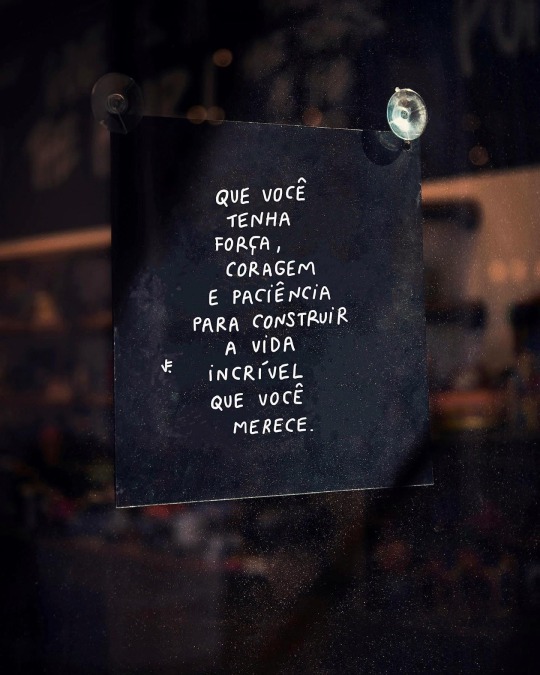 QUE VOCÊ
TENHA
FORÇA,
CORAGEM
E PACIÊNCIA
PARA CONSTRUIR
A VIDA
INCRÍVEL
QUE VOCÊ
MERECE.